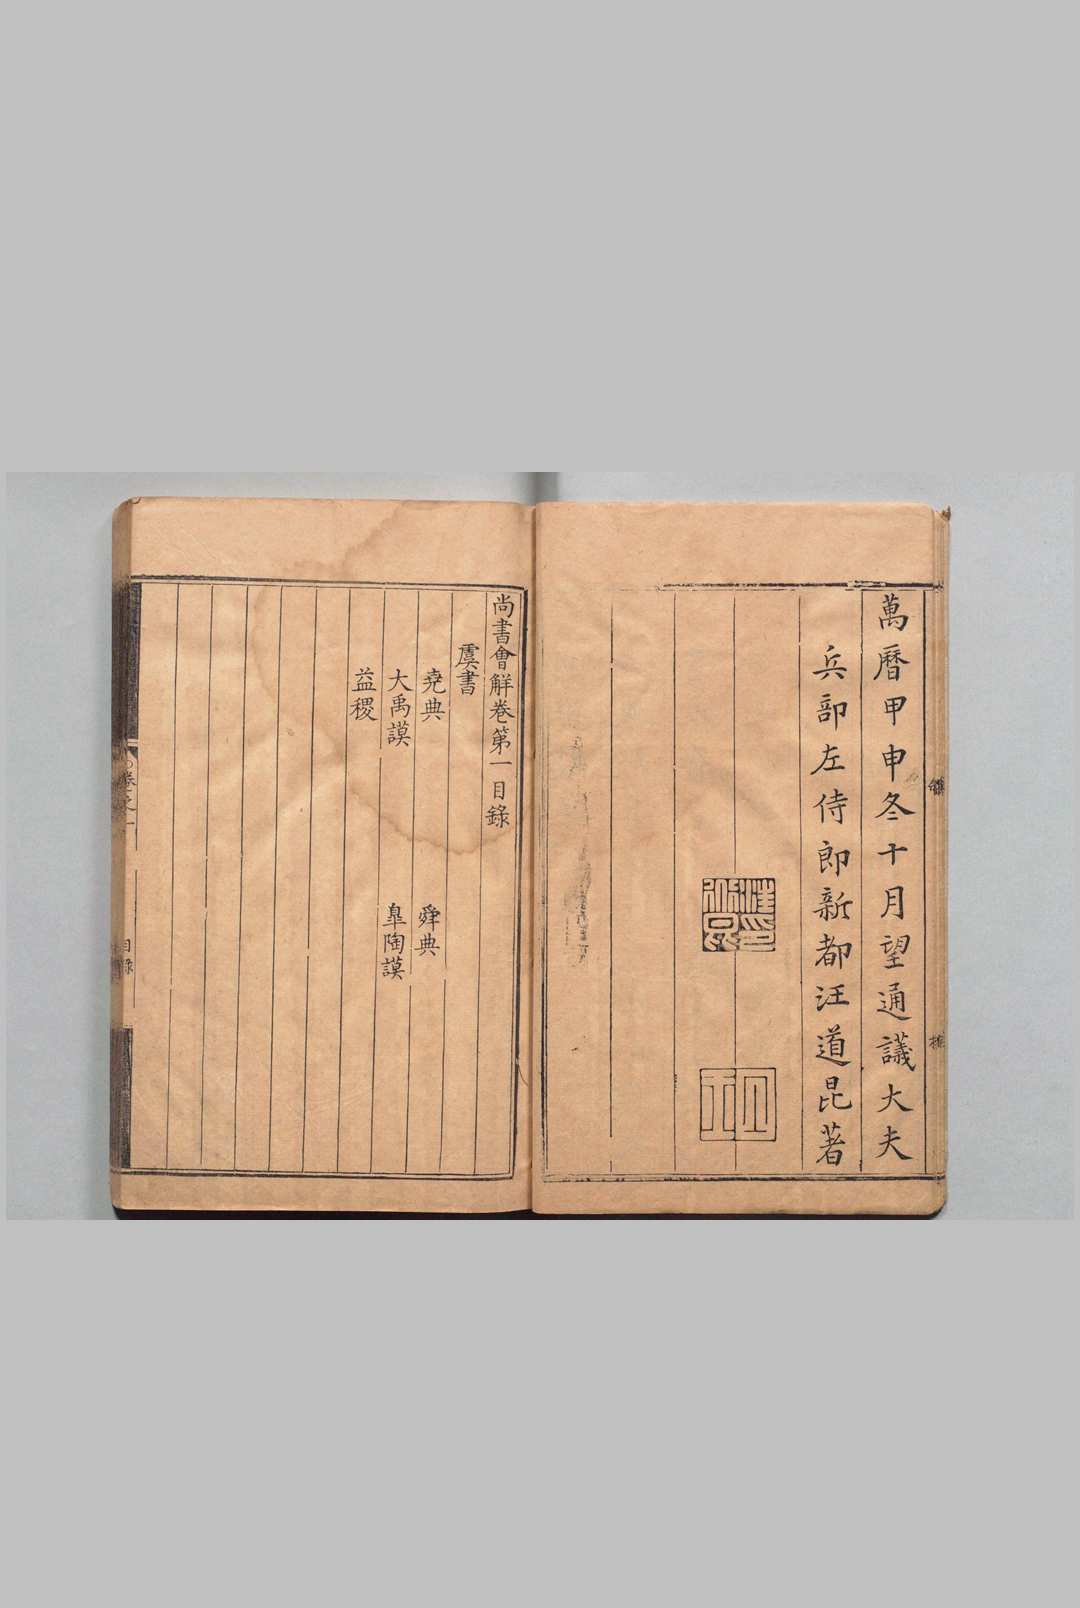 萬曆甲申冬十月望通議大夫
兵部左侍郎新都汪道昆著
尚書會解卷第一目錄
虞書
堯典 舜典
大禹謨 皐陶謨
益稷
卷之一
目錄